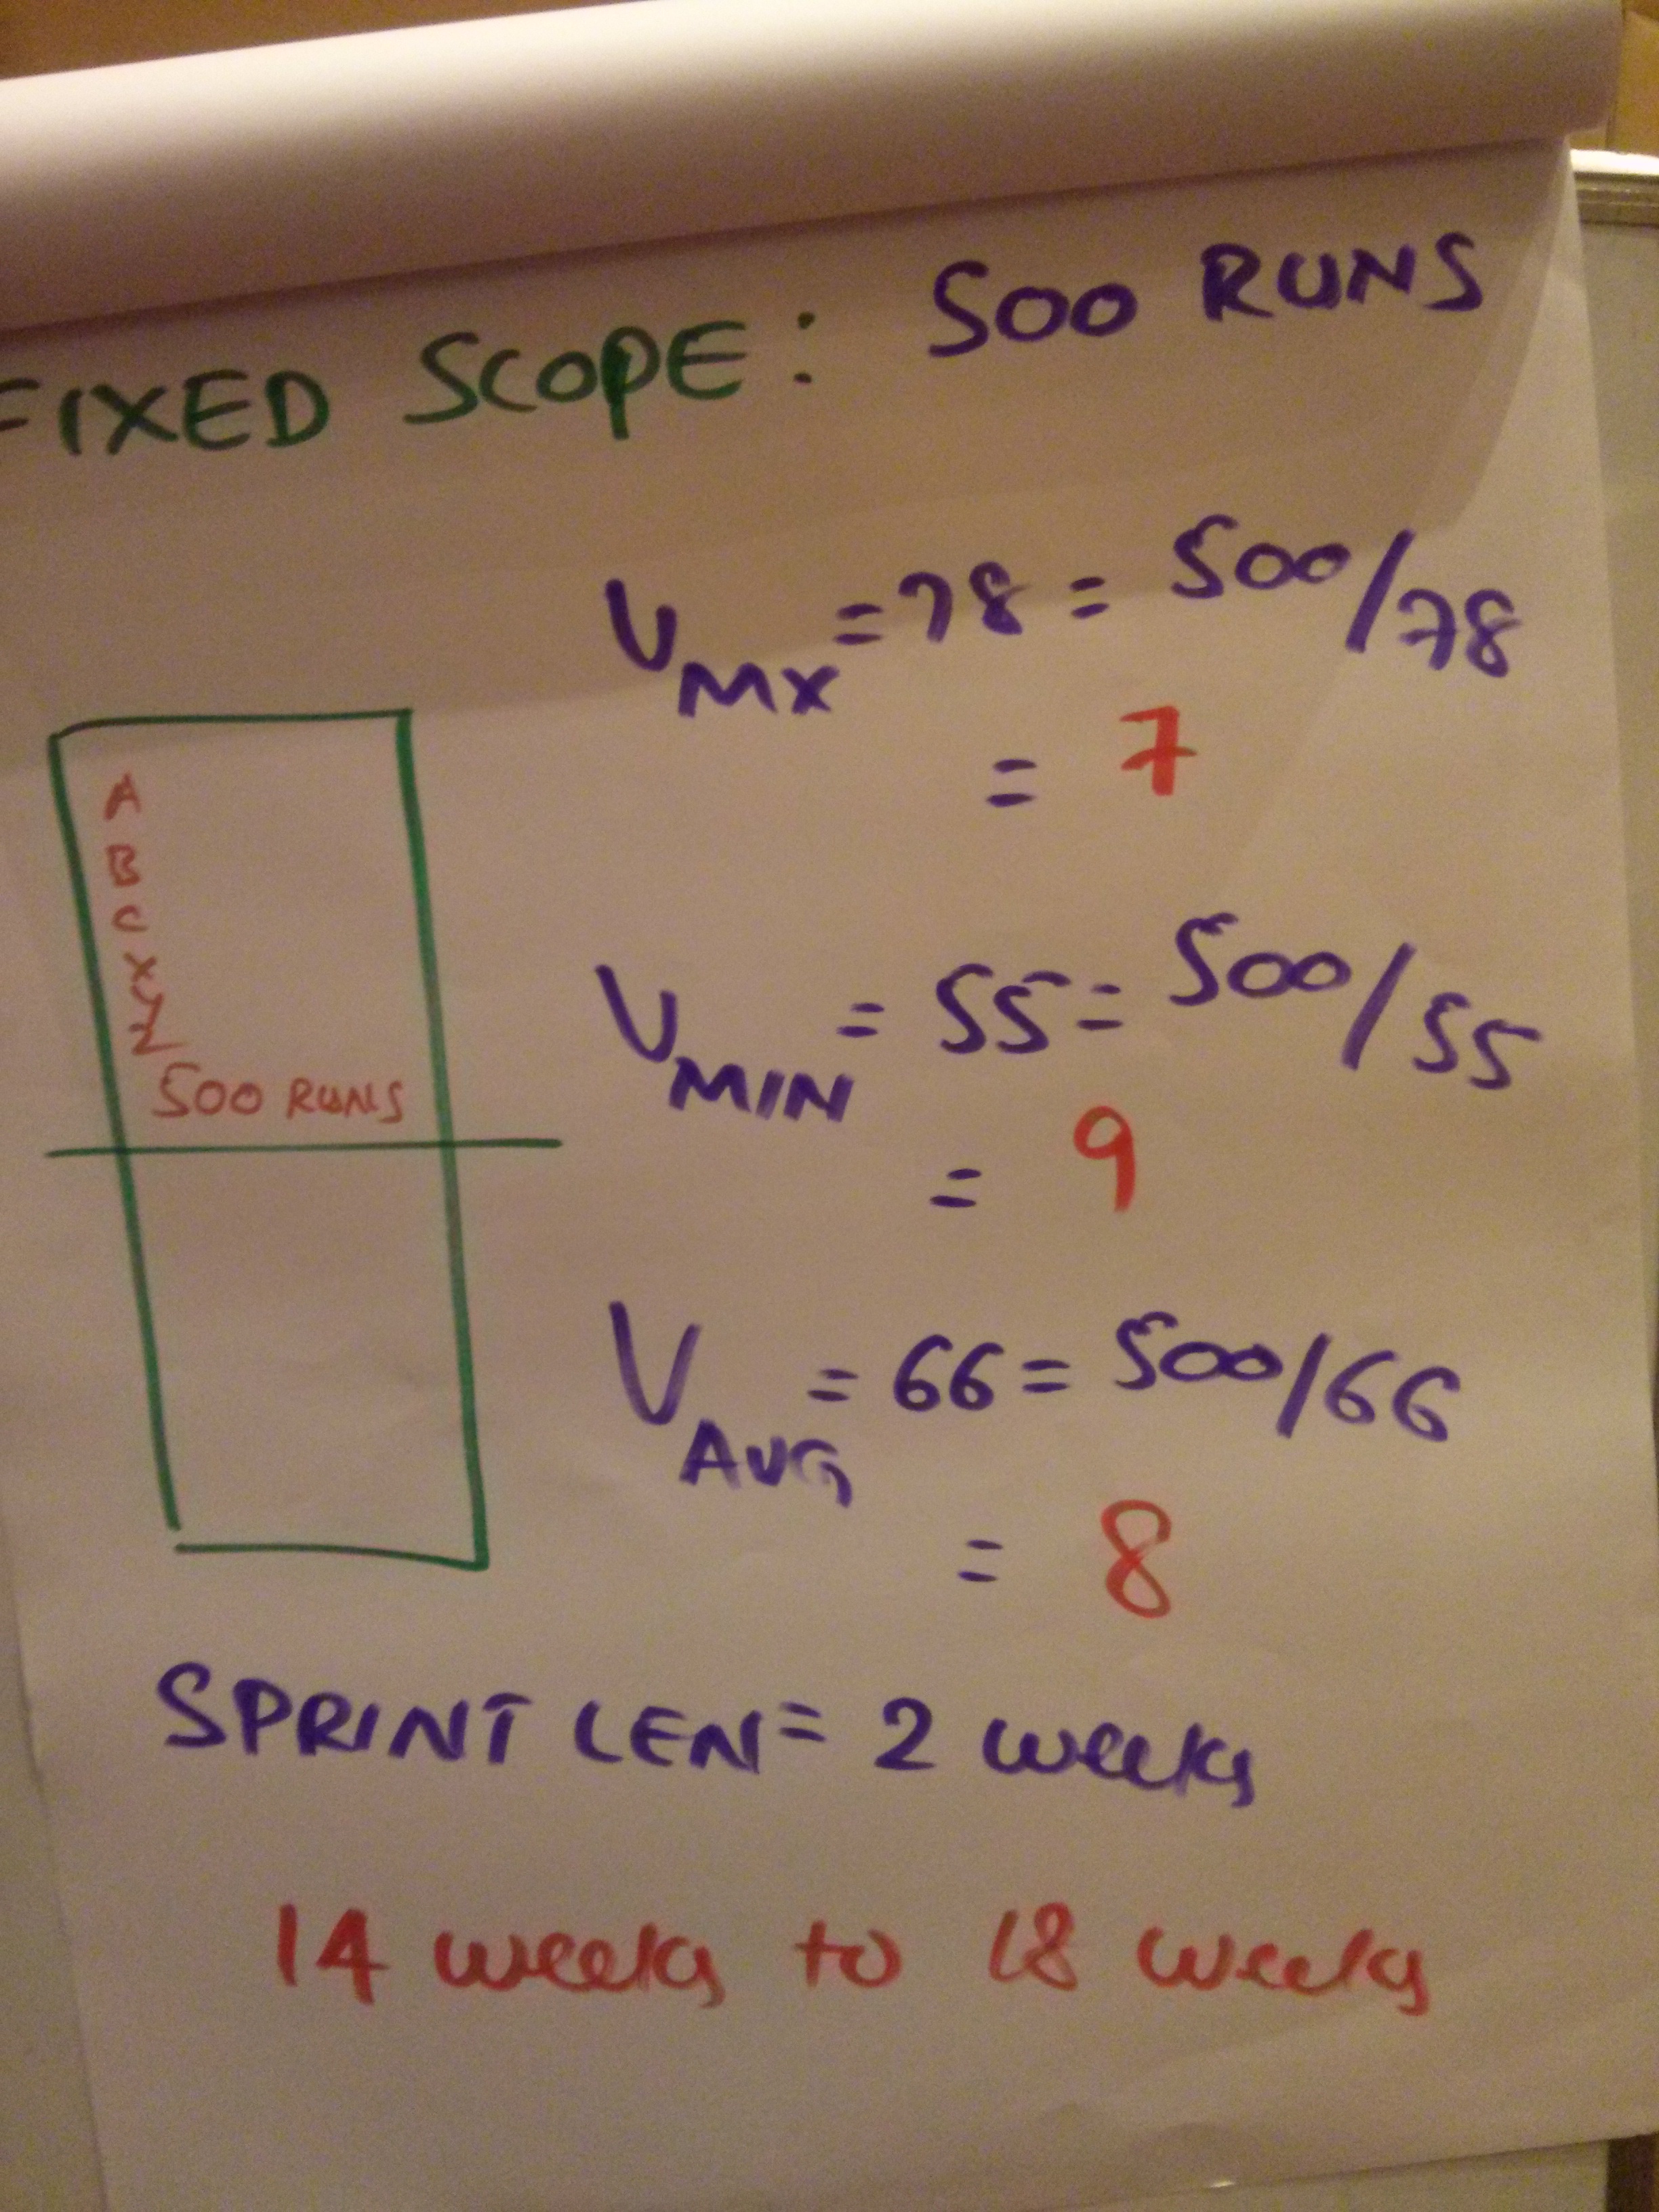 FIXED SCOPE: 500 RUNS
V MX = 78 = 500/78
= 7
A
B
C
X
Y
Z
500 RUNS
V MIN = 55 = 500/55
= 9
V AVG = 66 = 500/66
= 8
SPRINT LEN = 2 weeks
14 weeks to 18 weeks